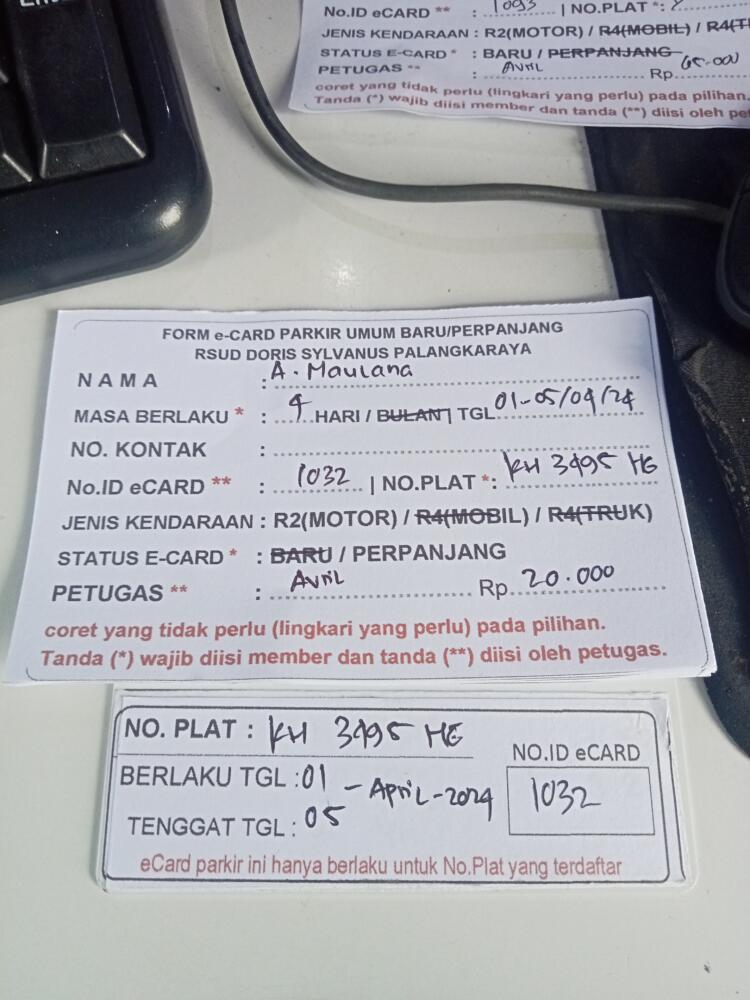 No.ID eCARD ** : 1093 | NO.PLAT *:
JENIS KENDARAAN : R2(MOTOR) / R4(MOBIL) / R4(T
STATUS E-CARD * : BARU / PERPANJANG
PETUGAS ** : Avril Rp. 65.000
coret yang tidak perlu (lingkari yang perlu) pada pilihan.
Tanda (*) wajib diisi member dan tanda (**) diisi oleh pe
FORM e-CARD PARKIR UMUM BARU/PERPANJANG
RSUD DORIS SYLVANUS PALANGKARAYA
NAMA : A. Maulana
MASA BERLAKU * : 4 HARI / BULAN | TGL 01-05/04/24
NO. KONTAK :
No.ID eCARD ** : 1032 | NO.PLAT *: KH 3495 HG
JENIS KENDARAAN : R2(MOTOR) / R4(MOBIL) / R4(TRUK)
STATUS E-CARD * : BARU / PERPANJANG
PETUGAS ** : Avril Rp. 20.000
coret yang tidak perlu (lingkari yang perlu) pada pilihan.
Tanda (*) wajib diisi member dan tanda (**) diisi oleh petugas.
NO. PLAT : KH 3495 HG
NO.ID eCARD
BERLAKU TGL : 01 - April - 2024
1032
TENGGAT TGL : 05
eCard parkir ini hanya berlaku untuk No.Plat yang terdaftar